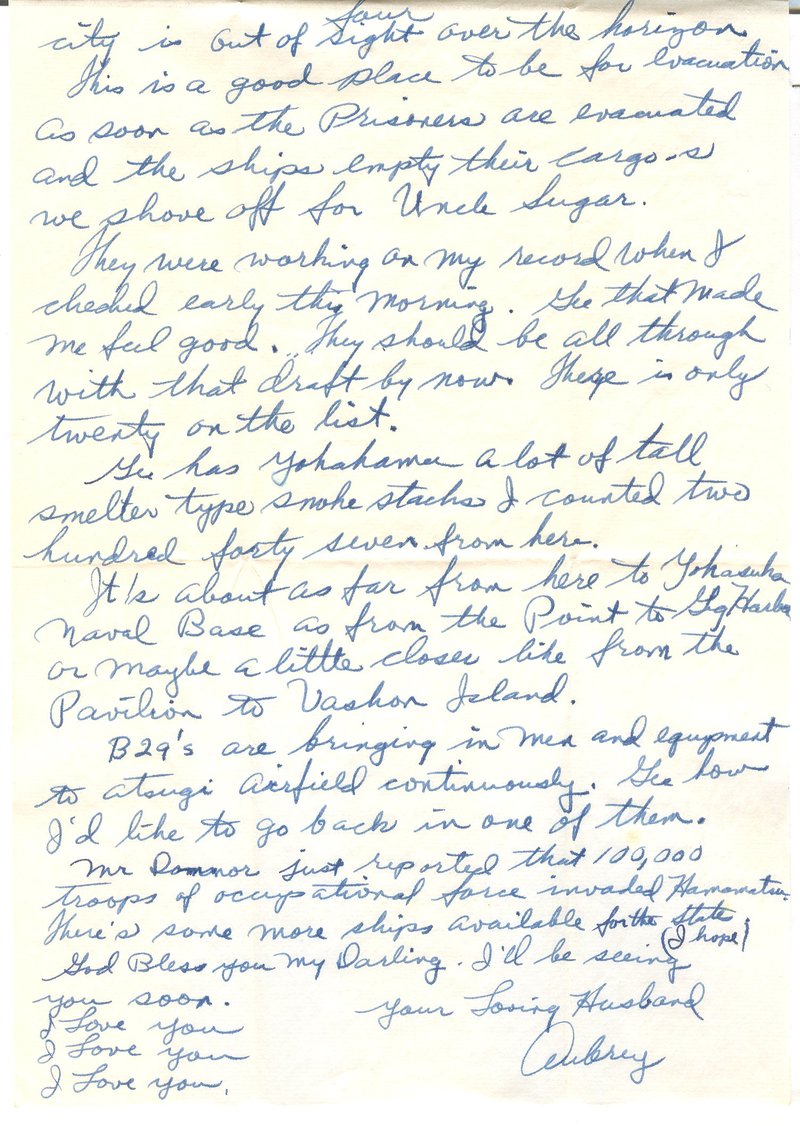 four
city is out of sight over the horizon.
This is a good place to be for evacuation
as soon as the Prisoners are evacuated
and the ships empty their cargo-s
we shove off for Uncle Sugar.
They were working on my record when I
checked early this morning. Gee that made
me feel good. They should be all through
with that draft by now. There is only
twenty on the list.
Gee has Yokahama a lot of tall
smelter type smoke stacks I counted two
hundred forty seven from here.
It's about as far from here to Yokasuka
Naval Base as from the Point to Gig Harbor
or maybe a little closer like from the
Pavilion to Vashon Island.
B29's are bringing in men and equipment
to atsugi airfield continuously. Gee how
I'd like to go back in one of them.
Mr Dammor just reported that 100,000
troops of occupational force invaded Hamamatsu.
There's some more ships available for the States
(I hope)
God Bless you My Darling. I'll be seeing
you soon.
Your Loving Husband
I Love you
I Love you
Aubrey
I Love you.